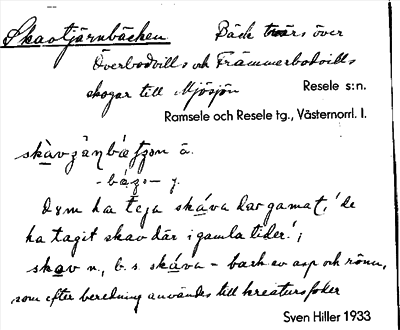 Skavtjärnbäcken Bäck tvärs över
Överbodvills och Främmerbodvills
skogar till Mjösjön Resele s:n.
Ramsele och Resele tg., Västernorrl. l.
ä.
dom ha skáva där gamat, 'de
ha tagit skav där i gamla tider';
skav n., b. s. skáva - bark av asp och rönn,
som efter beredning användes till kreatursfoder
Sven Hiller 1933